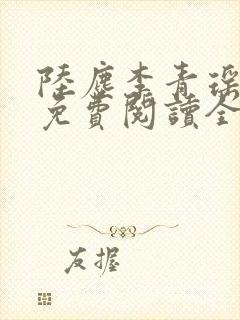 陸塵李青瑤
免費閱讀全
友握